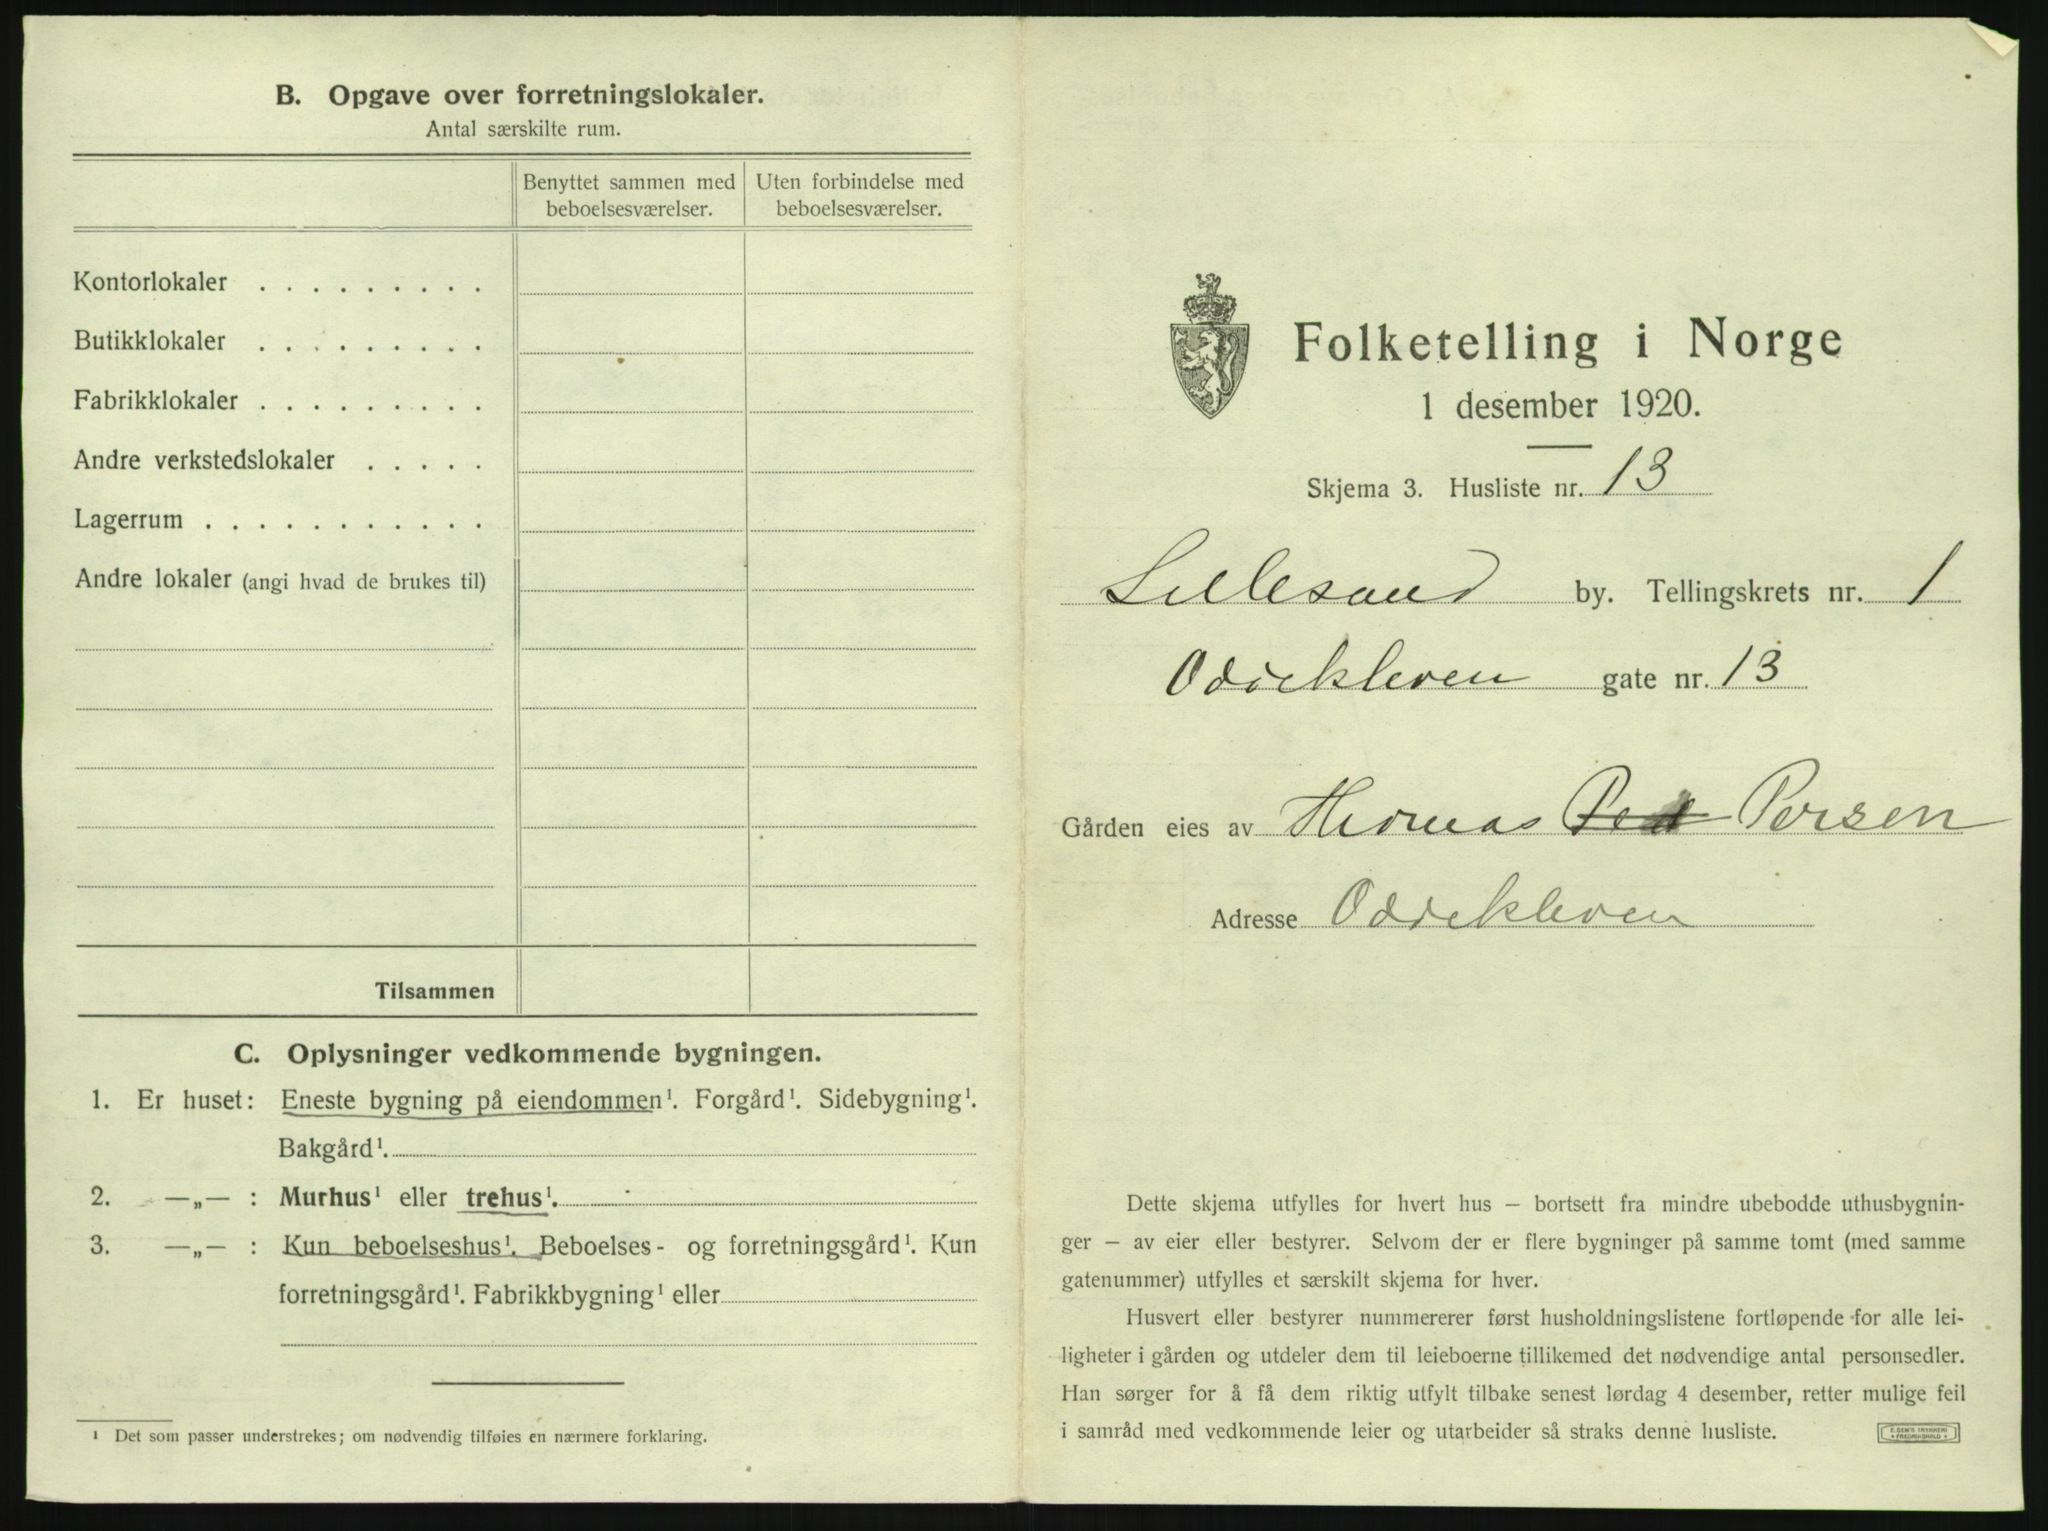 B. Opgave over forretningslokaler.
Antal særskilte rum.
Benyttet sammen med beboelsesværelser.
Uten forbindelse med beboelsesværelser.
Kontorlokaler . . . . . . . . .
Butikklokaler . . . . . . . . .
Fabrikklokaler . . . . . . . . .
Andre verkstedslokaler . . . . .
Lagerrum . . . . . . . . . . .
Andre lokaler (angi hvad de brukes til)
Tilsammen
C. Oplysninger vedkommende bygningen.
1. Er huset: Eneste bygning på eiendommen¹. Forgård¹. Sidebygning¹.
Bakgård¹.
2. —„— : Murhus¹ eller trehus¹.
3. —„— : Kun beboelseshus¹. Beboelses- og forretningsgård¹. Kun
forretningsgård¹. Fabrikkbygning¹ eller
¹ Det som passer understrekes; om nødvendig tilføies en nærmere forklaring.
Folketelling i Norge
1 desember 1920.
Skjema 3. Husliste nr. 13
Lillesand by. Tellingskrets nr. 1
Oddekleven gate nr. 13
Gården eies av Thomas Persen
Adresse Oddekleven
Dette skjema utfylles for hvert hus – bortsett fra mindre ubebodde uthusbygnin-
ger – av eier eller bestyrer. Selvom der er flere bygninger på samme tomt (med samme
gatenummer) utfylles et særskilt skjema for hver.
Husvert eller bestyrer nummererer først husholdningslistene fortløpende for alle lei-
ligheter i gården og utdeler dem til leieboerne tillikemed det nødvendige antal personsedler.
Han sørger for å få dem riktig utfylt tilbake senest lørdag 4 desember, retter mulige feil
i samråd med vedkommende leier og utarbeider så straks denne husliste.
E. SEM'S TRYKKERI
• FREDRIKSHALD •